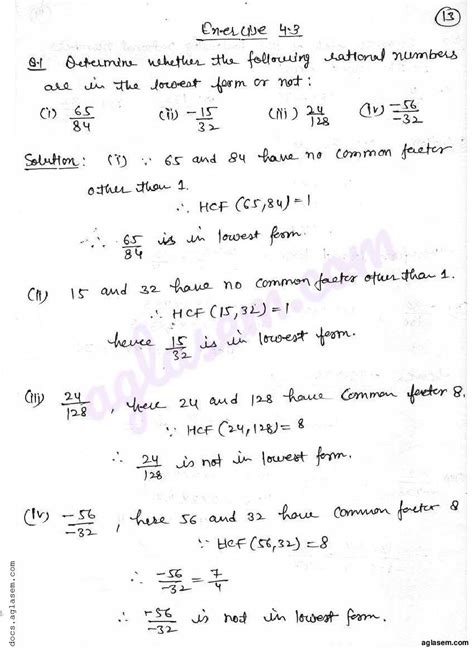 13
Exercise 4.3
Q.1 Determine whether the following rational numbers
are in the lowest form or not:
(i) 65/84 (ii) -15/32 (iii) 24/128 (iv) -56/-32
Solution: (i) ∵ 65 and 84 have no common factor
other than 1.
∴ HCF (65,84)=1
∴ 65/84 is in lowest form.
(ii) 15 and 32 have no common factor other than 1.
∴ HCF (15,32)=1
hence 15/32 is in lowest form.
(iii) 24/128, here 24 and 128 have common factor 8.
∵ HCF (24,128)=8
∴ 24/128 is not in lowest form.
(iv) -56/-32, here 56 and 32 have common factor 8
∵ HCF(56,32)=8
∴ -56/-32 = 7/4
∴ -56/-32 is not in lowest form.
aglasem.com
docs.aglasem.com
aglasem.com